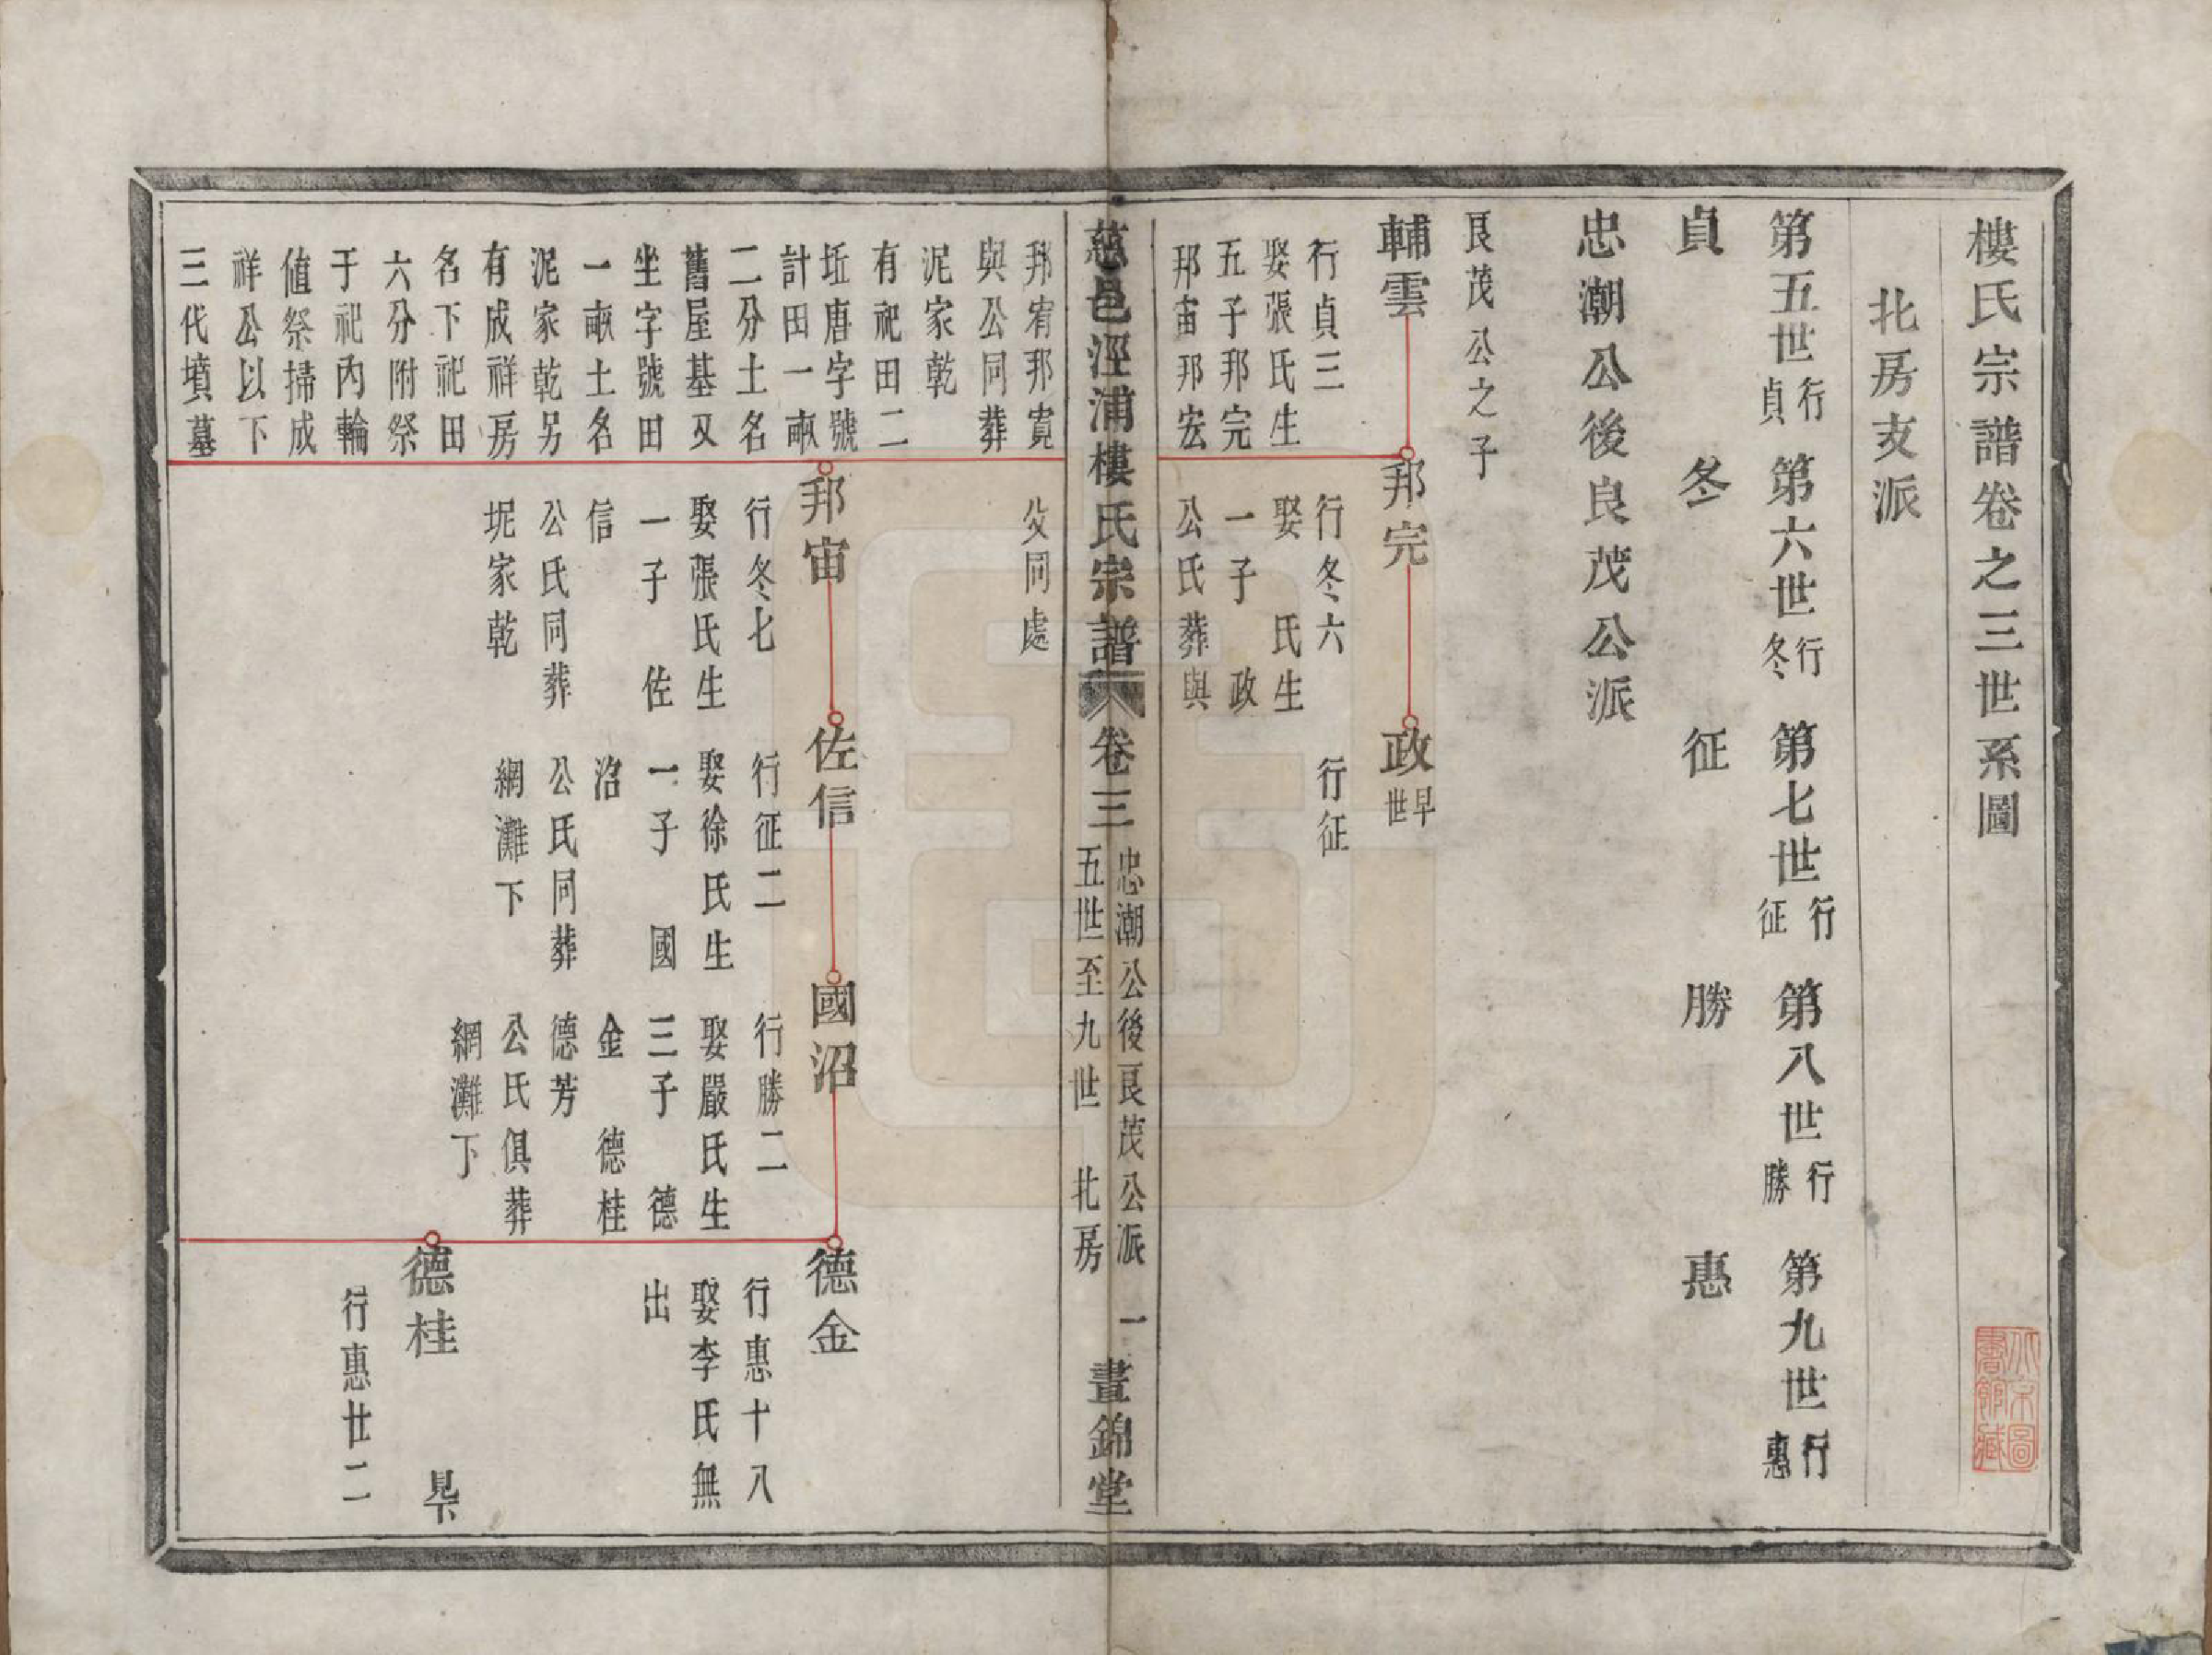 樓氏宗譜卷之三世系圖
北房支派
第五世行貞 第六世行冬 第七世行征 第八世行勝 第九世行惠
貞 冬 征 勝 惠
忠潮公後良茂公派
良茂公之子
輔雲
行貞三
娶張氏生
五子邦完
邦宙邦宏
邦宥邦寬
與公同葬
泥家乾
有祀田二
坵唐字號
計田一畝
二分土名
舊屋基又
坐字號田
一畝土名
泥家乾另
有成祥房
名下祀田
六分附祭
于祀內輪
值祭掃成
祥公以下
三代墳墓
邦完
行冬六
娶 氏生
一子 政
公氏葬與
父同處
政早世
行征
慈邑涇浦樓氏宗譜 卷三 忠潮公後良茂公派 五世至九世 北房 一 晝錦堂
邦宙
行冬七
娶張氏生
一子 佐
信
公氏同葬
坭家乾
佐信
行征二
娶徐氏生
一子 國
沼
公氏同葬
網灘下
國沼
行勝二
娶嚴氏生
三子 德
金 德桂
德芳
公氏俱葬
網灘下
德金
行惠十八
娶李氏無
出
德桂 見下
行惠廿二